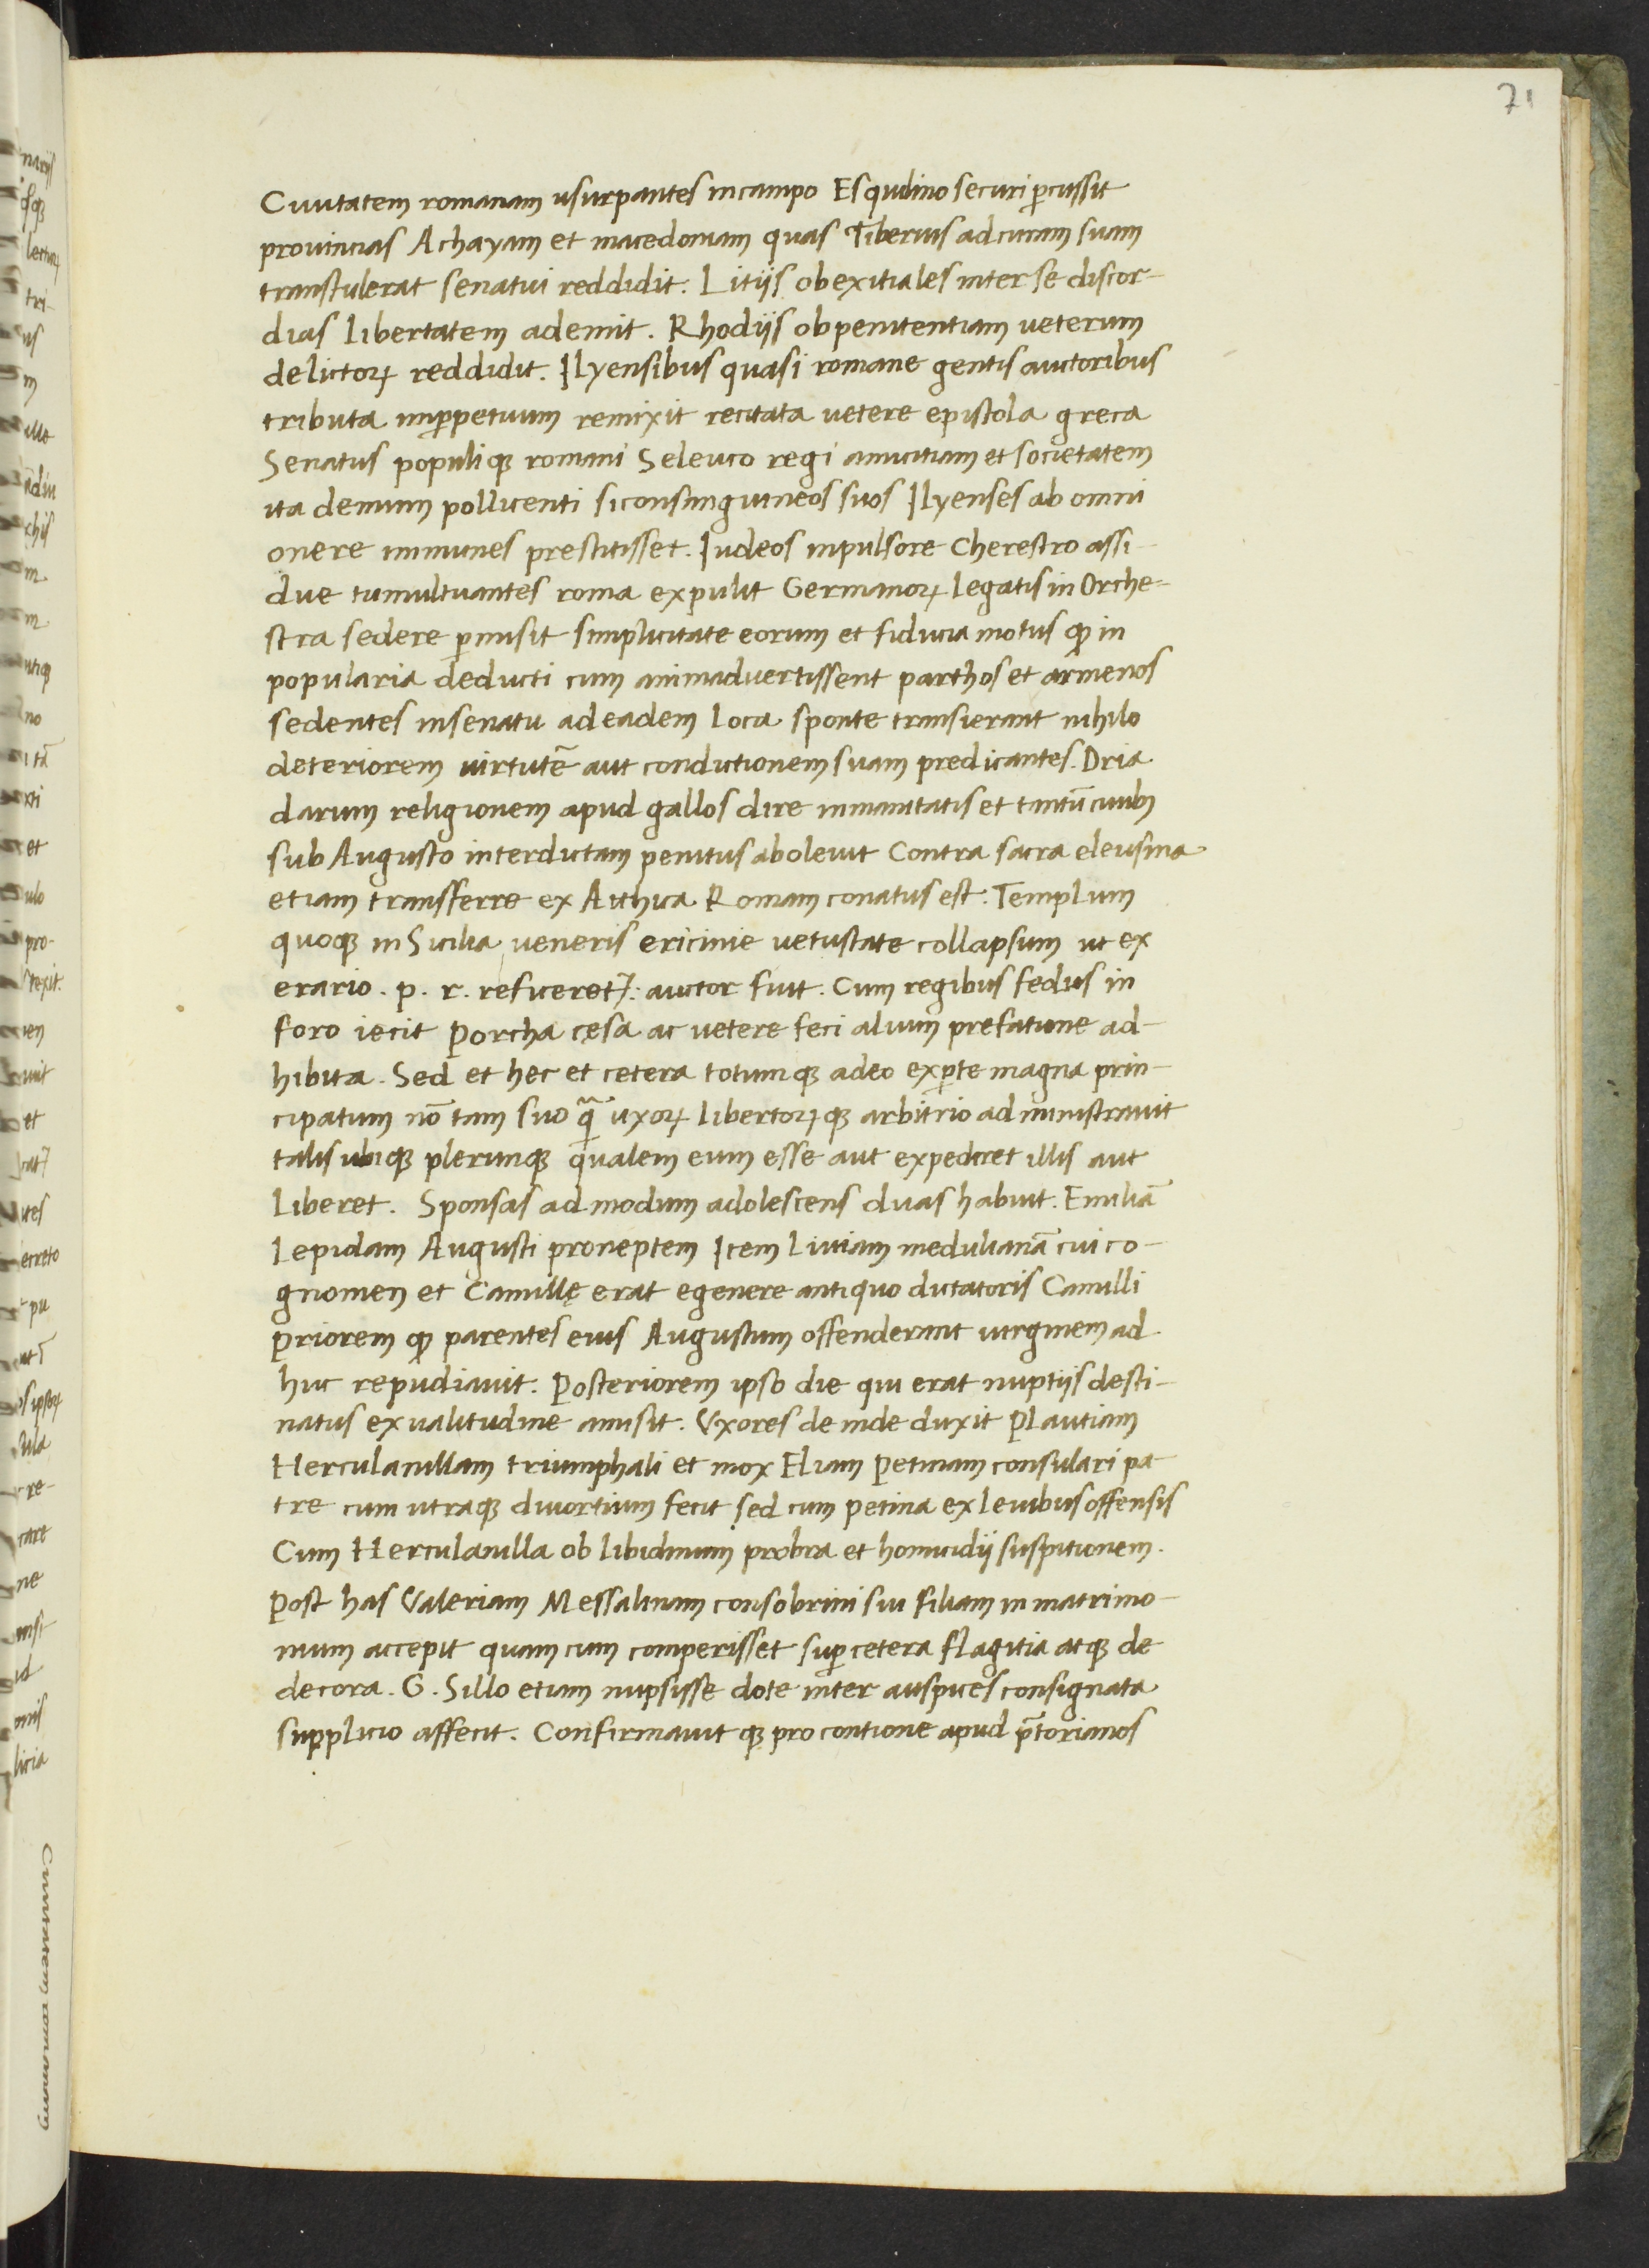 71
Ciuitatem romanam usurpantes in campo Esquilino securi ꝑcussit
prouincias Achayam et macedoniam quas Tiberius ad curam suam
transtulerat senatui reddidit. Litijs ob exitiales inter se discor-
dias libertatem ademit. Rhodijs ob penitentiam ueterum
delictoꝝ reddidit. Ilyensibus quasi romane gentis auctoribus
tributa inꝑpetuum remixit recitata uetere epistola greca
Senatus populiqꝫ romani Seleuco regi amicitiam et societatem
ita demum pollicenti si consanguineos suos Ilyenses ab omni
onere immunes prestitisset. Iudeos inpulsore Cherestro assi-
due tumultuantes roma expulit Germanoꝝ legatis in Orche-
stra sedere ꝑmisit simplicitate eorum et fiducia motus ꝙ in
popularia deducti cum animaduertissent parthos et armenos
sedentes in senatu ad eadem loca sponte transierant nihilo
deteriorem uirtutē aut condictionem suam predicantes. Dria
darum religionem apud gallos dire inmanitatis et tantū ciuibꝫ
sub Augusto interdictam penitus aboleuit Contra sacra eleusina
etiam transferre ex Atthica Romam conatus est. Templum
quoqꝫ in Sicilia ueneris ericinie uetustate collapsum ut ex
erario . p. r. reficeretꝛ: auctor fuit. Cum regibus fedus in
foro iecit porcha cęsa ac uetere feci alium prefatione ad-
hibita. Sed et hec et cetera totumqꝫ adeo exꝑte magna prin-
cipatum nō tam suo qᷓ uxoꝝ libertoꝝqꝫ arbitrio administrauit
talis ubiqꝫ plerunqꝫ qualem eum esse aut expediret illis aut
liberet. Sponsas ad modum adolescens duas habuit. Emiliā
Lepidam Augusti proneptem Item Liuiam medulianā cui co-
gnomen et Camillę erat e genere antiquo dictatoris Camilli
priorem ꝙ parentes eius Augustum offenderant uirginem ad
huc repudiauit. Posteriorem ipso die qui erat nuptijs desti-
natus ex ualitudine amisit. Vxores de inde duxit Plautiam
Herculanillam triumphali et mox Eliam Petinam consulari pa-
tre cum utraqꝫ diuortium fecit sed cum petina ex leuibus offensis
Cum Herculanilla ob libidinum probra et homicidij suspitionem.
Post has Valeriam Messalinam consobrini sui filiam in matrimo-
nium accepit quam cum comperisset suꝑ cetera flagitia atqꝫ de
decora. G. Sillo etiam nupsisse dote inter auspices consignata
supplicio affecit. Confirmauitqꝫ pro contione apud p̄torianos
Ciuitatem romanam